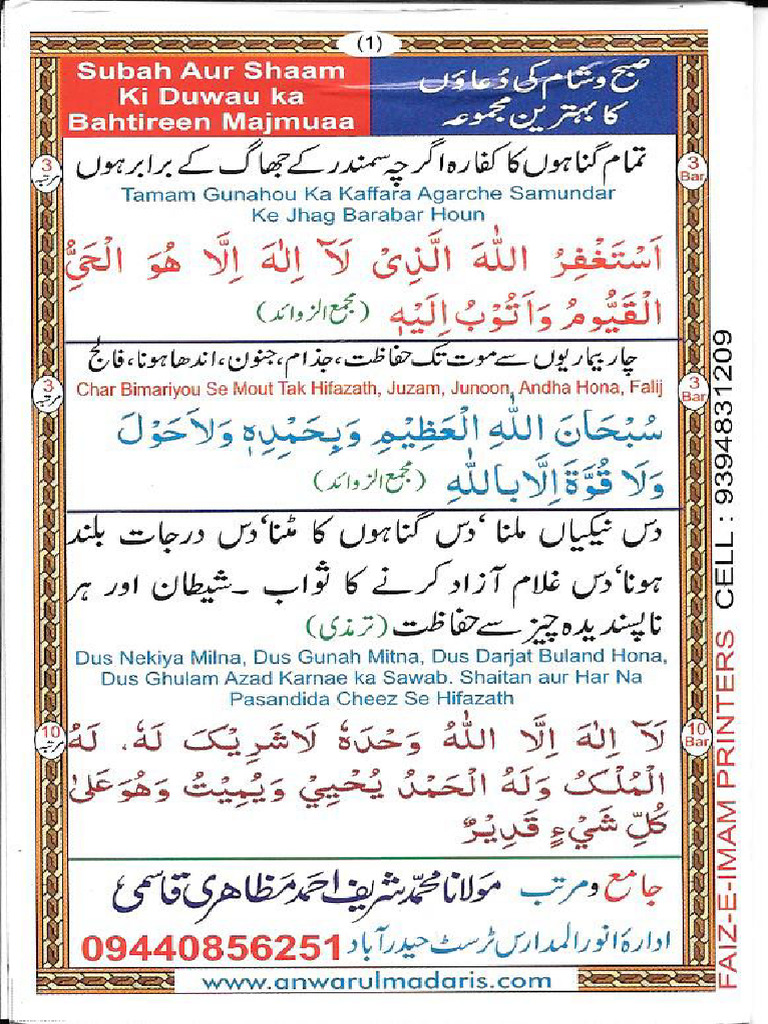 (1)
Subah Aur Shaam
Ki Duwau ka
Bahtireen Majmuaa
صبح و شام کی دُعاؤں
کا بہترین مجموعہ
3 مرتبہ
3 Bar
تمام گناہوں کا کفارہ اگرچہ سمندر کے جھاگ کے برابر ہوں
Tamam Gunahou Ka Kaffara Agarche Samundar
Ke Jhag Barabar Houn
اَسْتَغْفِرُ اللّٰهَ الَّذِىْ لَآ اِلٰهَ اِلَّا هُوَ الْحَىُّ
الْقَيُّوْمُ وَاَتُوْبُ اِلَيْهِ (مجمع الزوائد)
3 مرتبہ
3 Bar
چار بیماریوں سے موت تک حفاظت، جذام، جنون، اندھا ہونا، فالج
Char Bimariyou Se Mout Tak Hifazath, Juzam, Junoon, Andha Hona, Falij
سُبْحَانَ اللّٰهِ الْعَظِيْمِ وَبِحَمْدِهٖ وَلَاحَوْلَ
وَلَا قُوَّةَ اِلَّا بِاللّٰهِ (مجمع الزوائد)
دس نیکیاں ملنا‘ دس گناہوں کا مٹنا‘ دس درجات بلند
ہونا‘ دس غلام آزاد کرنے کا ثواب ۔ شیطان اور ہر
ناپسندیدہ چیز سے حفاظت (ترمذی)
Dus Nekiya Milna, Dus Gunah Mitna, Dus Darjat Buland Hona,
Dus Ghulam Azad Karnae ka Sawab. Shaitan aur Har Na
Pasandida Cheez Se Hifazath
10 مرتبہ
10 Bar
لَآ اِلٰهَ اِلَّا اللّٰهُ وَحْدَهٗ لَاشَرِيْكَ لَهٗ، لَهُ
الْمُلْكُ وَلَهُ الْحَمْدُ يُحْيِيْ وَيُمِيْتُ وَهُوَ عَلىٰ
كُلِّ شَيْءٍ قَدِيْرٌ
جامع و مرتب مولانا محمّد شریف احمد مظاہری قاسمی
ادارۂ انور المدارس ٹرسٹ حیدرآباد 09440856251
www.anwarulmadaris.com
FAIZ-E-IMAM PRINTERS CELL : 9394831209